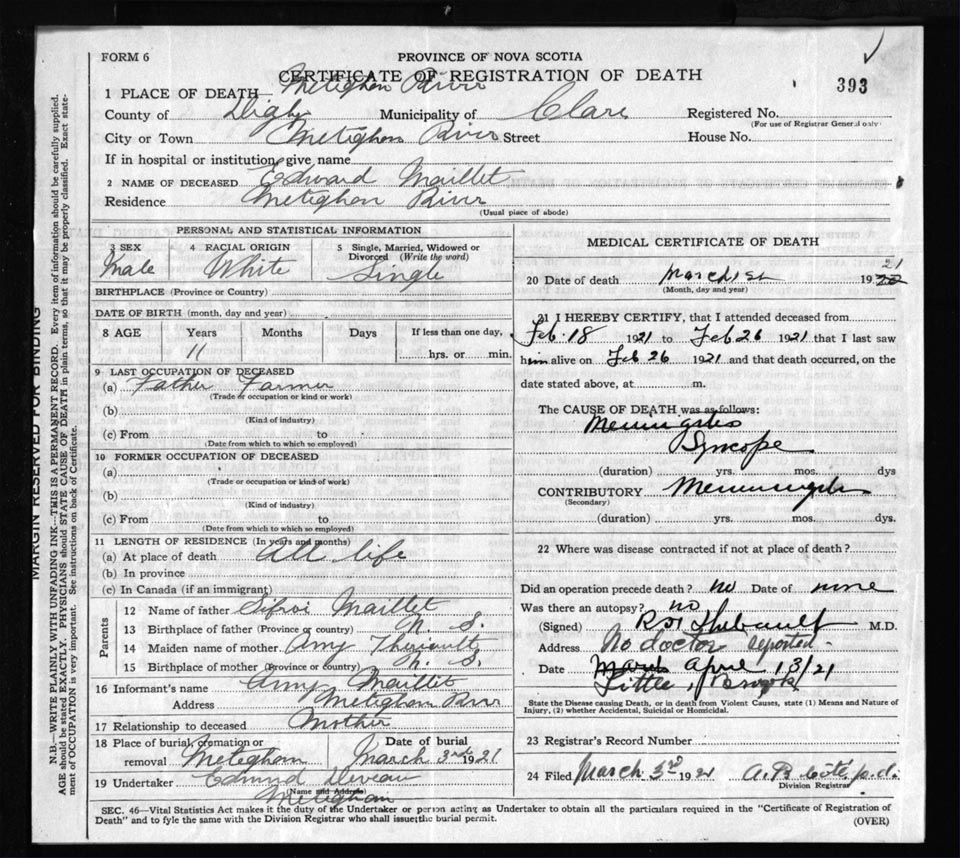 FORM 6
PROVINCE OF NOVA SCOTIA
CERTIFICATE OF REGISTRATION OF DEATH
393
1 PLACE OF DEATH Meteghan River
County of Digby Municipality of Clare Registered No.
(For use of Registrar General only)
City or Town Meteghan River Street House No.
If in hospital or institution, give name
2 NAME OF DECEASED Edward Maillet
Residence Meteghan River
(Usual place of abode)
PERSONAL AND STATISTICAL INFORMATION
3 SEX 4 RACIAL ORIGIN 5 Single, Married, Widowed or Divorced (Write the word)
Male White Single
BIRTHPLACE (Province or Country)
DATE OF BIRTH (month, day and year)
8 AGE Years Months Days If less than one day,
11 hrs. or min.
9 LAST OCCUPATION OF DECEASED
(a) Father Farmer
(Trade or occupation or kind or work)
(b)
(Kind of industry)
(c) From to
(Date from which to which to employed)
10 FORMER OCCUPATION OF DECEASED
(a)
(Trade or occupation or kind of work)
(b)
(Kind of industry)
(c) From to
(Date from which to which to employed)
11 LENGTH OF RESIDENCE (In years and months)
(a) At place of death All life
(b) In province
(c) In Canada (if an immigrant)
Parents
12 Name of father Sifroi Maillet
13 Birthplace of father (Province or country) N. S.
14 Maiden name of mother Amy Theriault
15 Birthplace of mother (Province or country) N. S.
16 Informant's name Amy Maillet
Address Meteghan River
17 Relationship to deceased Mother
18 Place of burial, cremation or removal Meteghan Date of burial March 3rd 1921
19 Undertaker Edmund Deveau
(Name and Address)
Meteghan
MEDICAL CERTIFICATE OF DEATH
20 Date of death March 1st 19 22 21
(Month, day and year)
21 I HEREBY CERTIFY, that I attended deceased from
Feb. 18 1921 to Feb 26 1921 that I last saw
him alive on Feb 26 1921 and that death occurred, on the
date stated above, at m.
The CAUSE OF DEATH was as follows:
Meningitis
Syncope
(duration) yrs. mos. dys
CONTRIBUTORY Meningitis
(Secondary)
(duration) yrs. mos. dys.
22 Where was disease contracted if not at place of death?
Did an operation precede death? no Date of none
Was there an autopsy? no
(Signed) M.D.
Address No doctor reported-
Date March April 13/21
Little Brook
State the Disease causing Death, or in death from Violent Causes, state (1) Means and Nature of Injury, (2) whether Accidental, Suicidal or Homicidal.
23 Registrar's Record Number
24 Filed March 3rd 1921 p.d.
Division Registrar
SEC. 46—Vital Statistics Act makes it the duty of the Undertaker or person acting as Undertaker to obtain all the particulars required in the "Certificate of Registration of
Death" and to fyle the same with the Division Registrar who shall issue the burial permit.
(OVER)
MARGIN RESERVED FOR BINDING
N.B.—WRITE PLAINLY WITH UNFADING INK—THIS IS A PERMANENT RECORD. Every item of information should be carefully supplied.
AGE should be stated EXACTLY. PHYSICIANS should STATE CAUSE OF DEATH in plain terms, so that it may be properly classified. Exact state-
ment of OCCUPATION is very important. See instructions on back of Certificate.